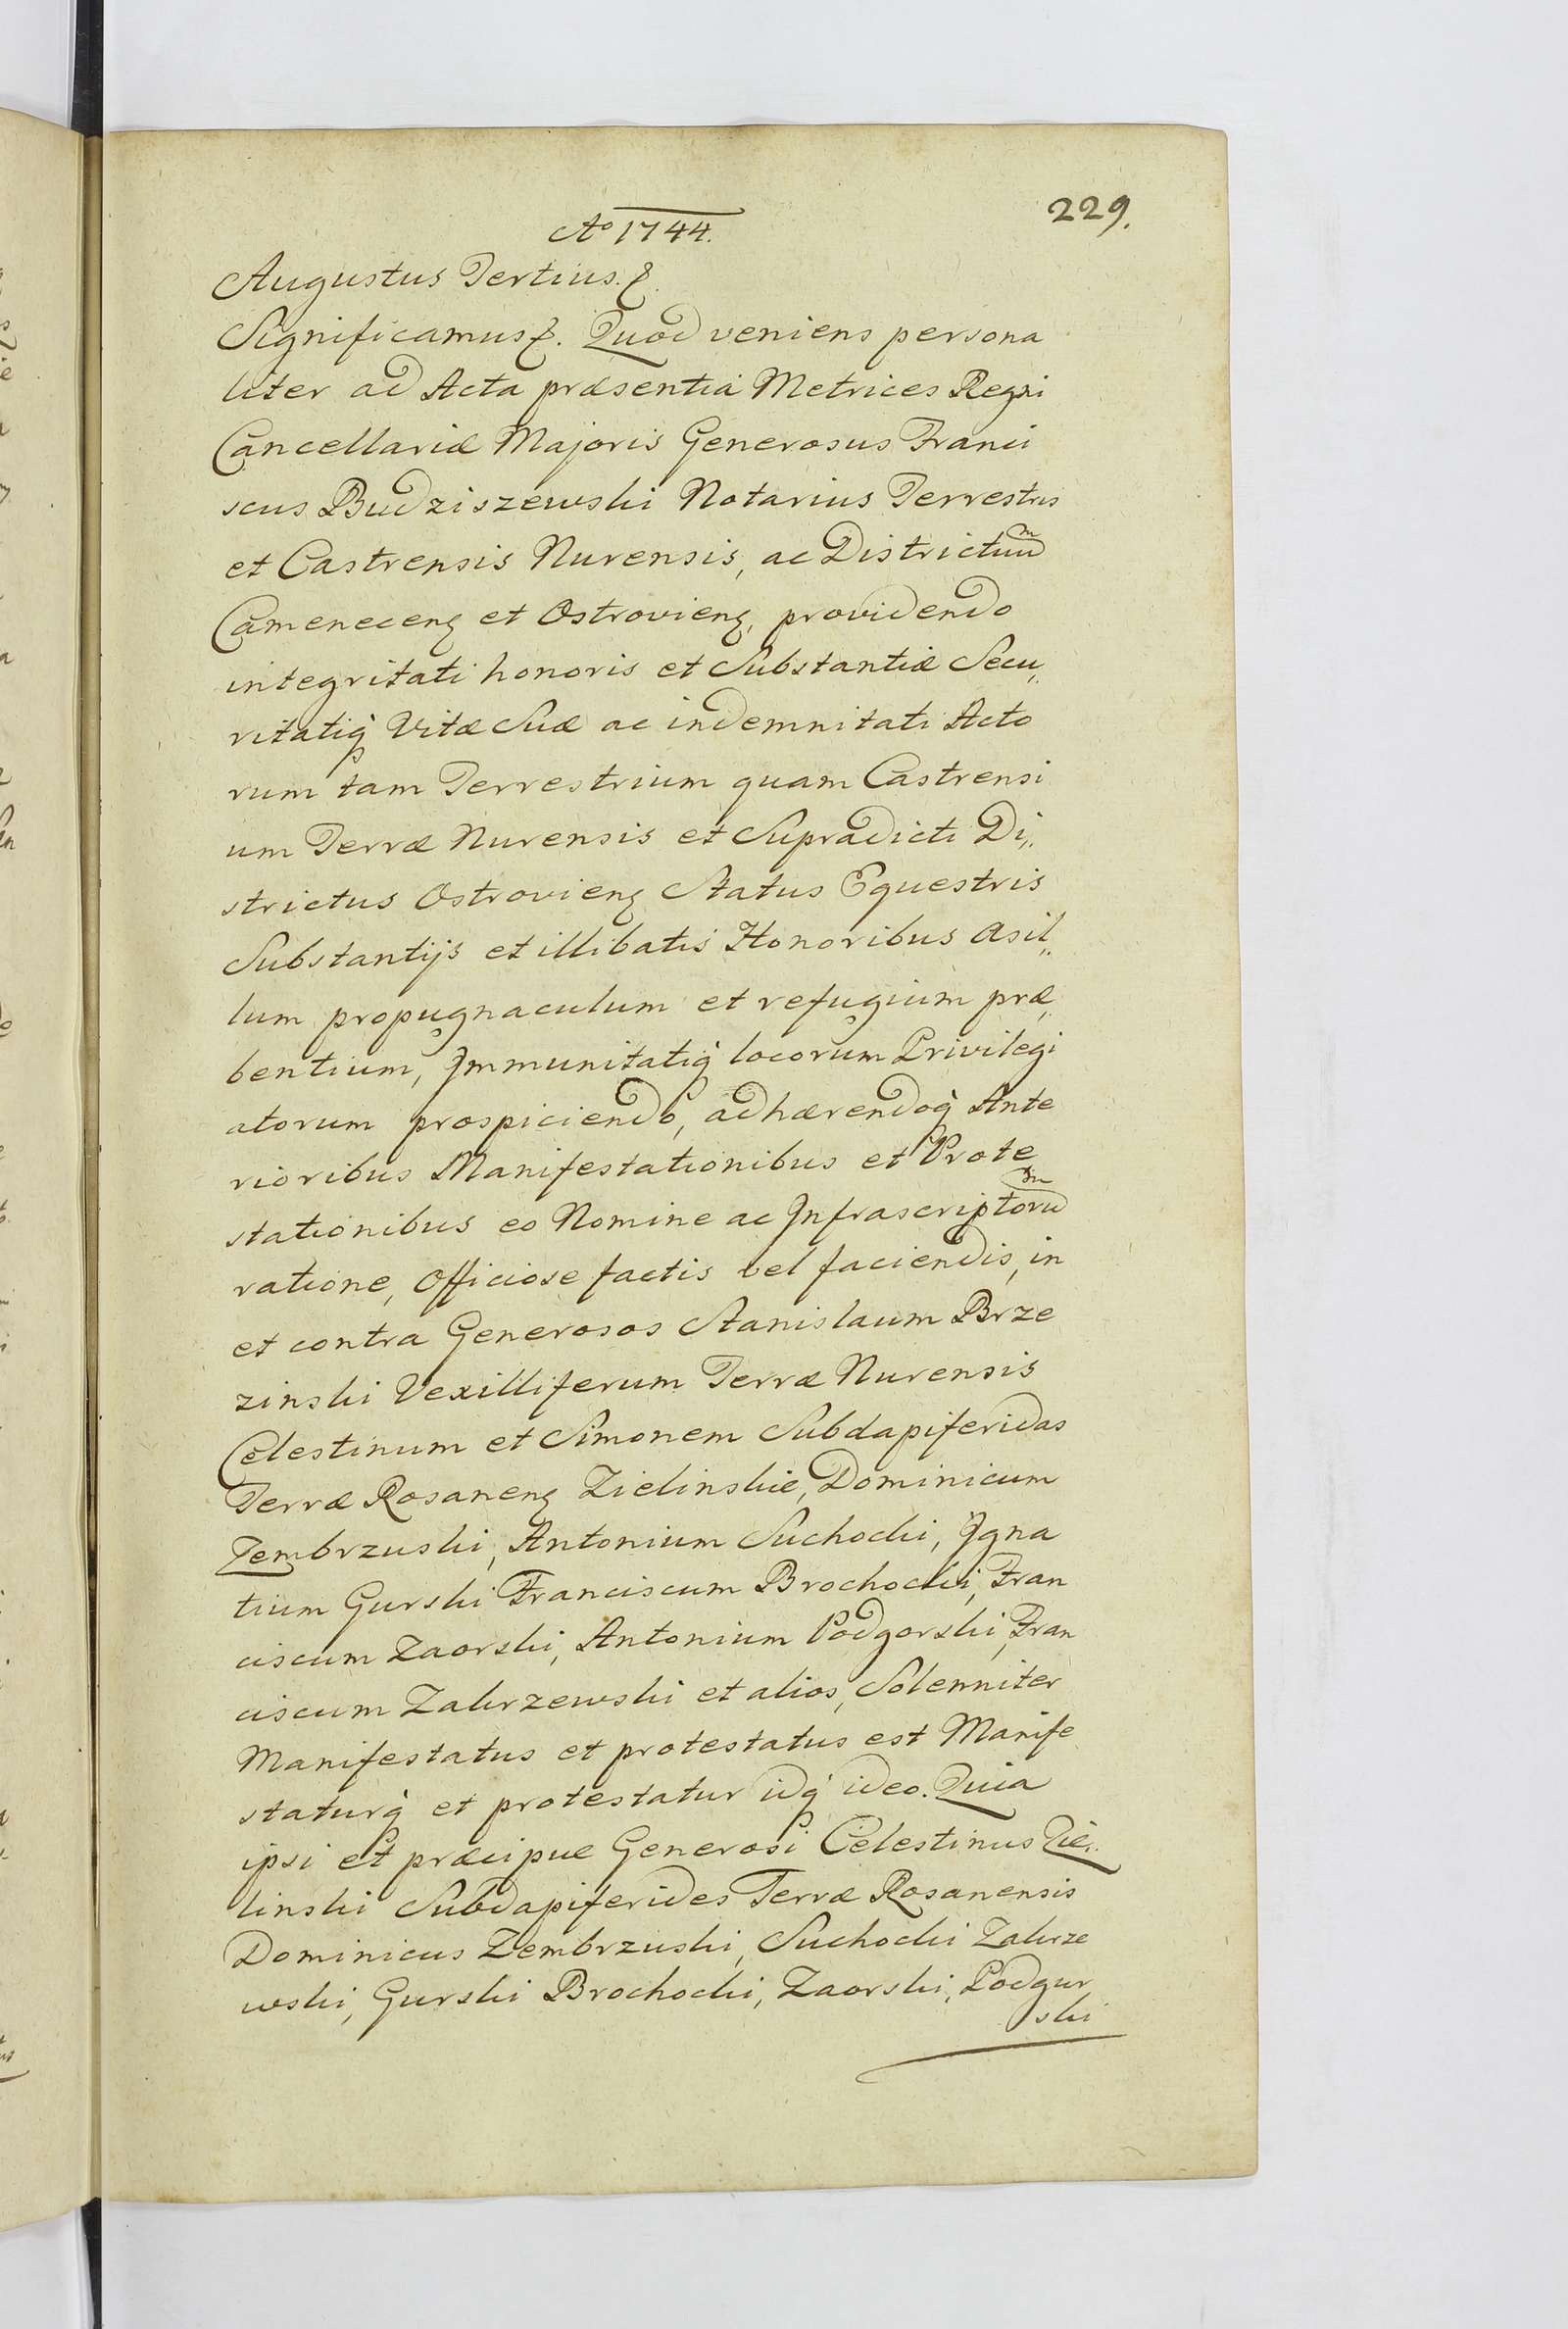 229.
Ao 1744.
Augustus Tertius. &.
Significamus &. Quod veniens persona
liter ad Acta præsentia Metrices Regni
Cancellariæ Majoris Generosus Franci
scus Budziszewski Notarius Terrestris
et Castrensis Nurensis, ac Districtuum
Camenecenß et Ostrovienß, providendo
integritati honoris et Substantiæ Secu„
ritatiq̀ Vitæ Suæ ac indemnitati Acto
rum tam Terrestrium quam Castrensi
um Terræ Nurensis et Supradicti Di„
strictus Ostrovienß Status Equestris
Substantijs et illibatis Honoribus Asil„
lum propugnaculum et refugium præ„
bentium, Immunitatiq̀ locorum Privilegi
atorum prospiciendo, adhærendoq̀ Ante
rioribus Manifestationibus et Prote
stationibus eo Nomine ac Infrascriptorum
ratione, Officiose factis vel faciendis, in
et contra Generosos Stanislaum Brze
zinski Vexilliferum Terræ Nurensis
Celestinum et Simonem Subdapiferidas
Terræ Rosanenß Zielinskie, Dominicum
Zembrzuski, Antonium Suchocki, Igna
tium Gurski Franciscum Brochocki, Fran
ciscum Zaorski, Antonium Podgorski, Fran
ciscum Zakrzewski et alios, Solenniter
Manifestatus et protestatus est Manife
staturq̀ et protestatur idq̀ ideo. Quia
ipsi et præcipue Generosi Celestinus Zie„
linski Subdapiferides Terræ Rosanensis
Dominicus Zembrzuski, Suchocki Zakrze
wski, Gurski Brochocki, Zaorski, Podgur
ski